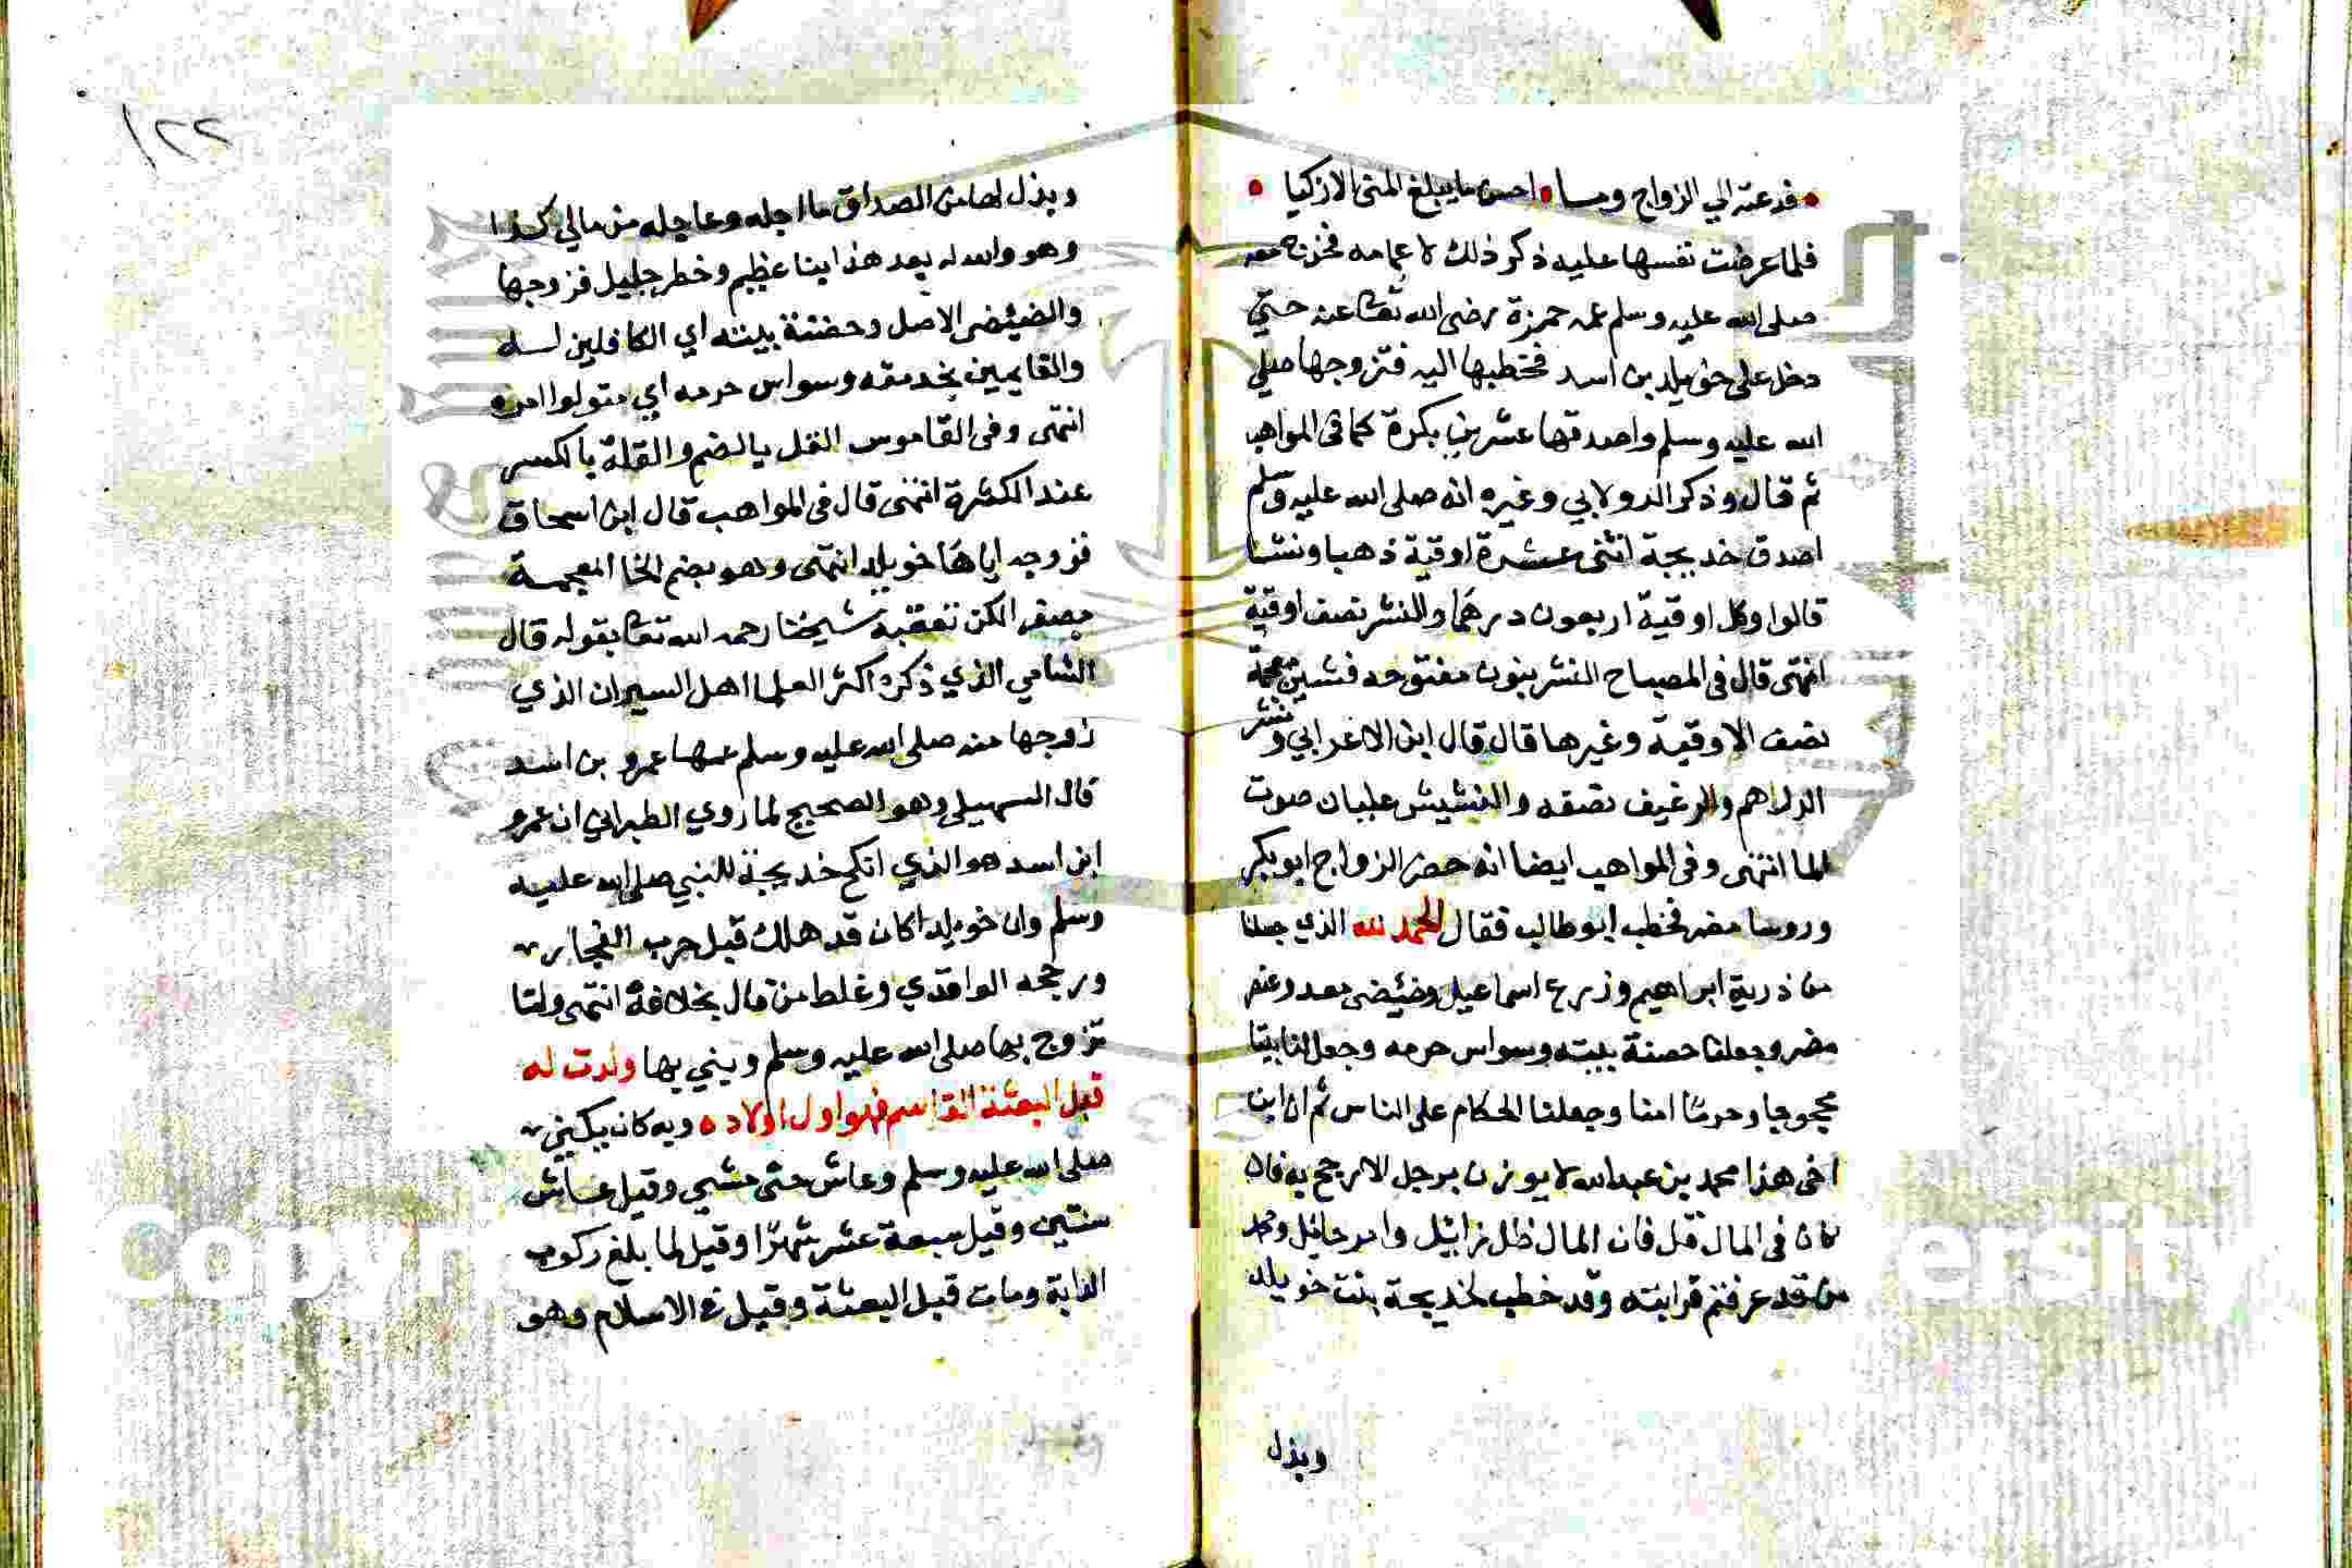 فدعته الي الزواج وما احسن ما يبلغ المنى الاذكيا
فلما عرضت نفسها عليه ذكر ذلك لاعمامه فخرج معه
صلى الله عليه وسلم عمه حمزة رضى الله تعا عنه حتي
دخل على خويلد بن اسد فخطبها اليه فتزوجها صلي
الله عليه وسلم واصدقها عشرين بكرة كما في المواهب
ثم قال وذكر الدولابي وغيره انه صلى الله عليه وسلم
اصدق خديجة اثنتى عشرة اوقية ذهبا ونشا
قالوا وكل اوقية اربعون درهما والنش نصف اوقية
انتهى قال في المصباح النش بنون مفتوحه فشين معجمة
نصف الاوقية وغيرها قال قال ابن الاعرابي ونش
الدراهم والرغيف نصفه والنشيش غليان صوت
الما انتهى وفي المواهب ايضا انه حضر الزواج ابو بكر
وروسا مضر فخطب ابو طالب فقال الحمد لله الذي جعلنا
من ذرية ابراهيم وزرع اسماعيل وضيضى معد وعنصر
مضر وجعلنا حضنة بيته وسواس حرمه وجعل لنا بيتا
محجوجا وحرما امنا وجعلنا الحكام على الناس ثم ان ابن
اخى هذا محمد بن عبد الله لا يوزن برجل الا رجح به فان
كان في المال قل فان المال ظل زائل وامر حائل ومحمد
من قد عرفتم قرابته وقد خطب خديجة بنت خويلد
وبذل
١٢٢
وبذل لها من الصداق ما اجله وعاجله من مالي كذا
وهو والله بعد هذا نبا عظيم وخطر جليل فزوجها
والضيضى الاصل وحضنة بيته اي الكافلين لـه
والقايمين بخدمته وسواس حرمه اي متولوا امره
انتهى وفي القاموس القل بالضم والقلة بالكسر
عند الكثرة انتهى قال في المواهب قال ابن اسحاق
فزوجه اياها خويلد انتهى وهو بضم الخا المعجمة
مصغر الكن تعقبه شيخنا رحمه الله تعا بقوله قال
الشامي الذي ذكره اكثر العلما اهل السير ان الذي
زوجها منه صلى الله عليه وسلم عمها عمرو بن اسد
قال السهيلي وهو الصحيح لما روي الطبراني ان عمرو
ابن اسد هو الذي انكح خديجة للنبي صلى الله عليه
وسلم وان خويلدا كان قد هلك قبل حرب الفجار
ورجحه الواقدي وغلط من قال بخلافه انتهى ولما
تزوج بها صلى الله عليه وسلم وبني بها ولدت له
قبل البعثة القاسم فهو اول اولاده وبه كان يكني
صلى الله عليه وسلم وعاش حتى مشي وقيل عاش
سنتين وقيل سبعة عشر شهرا وقيل لما بلغ ركوب
الدابة ومات قبل البعثة وقيل في الاسلام وهو